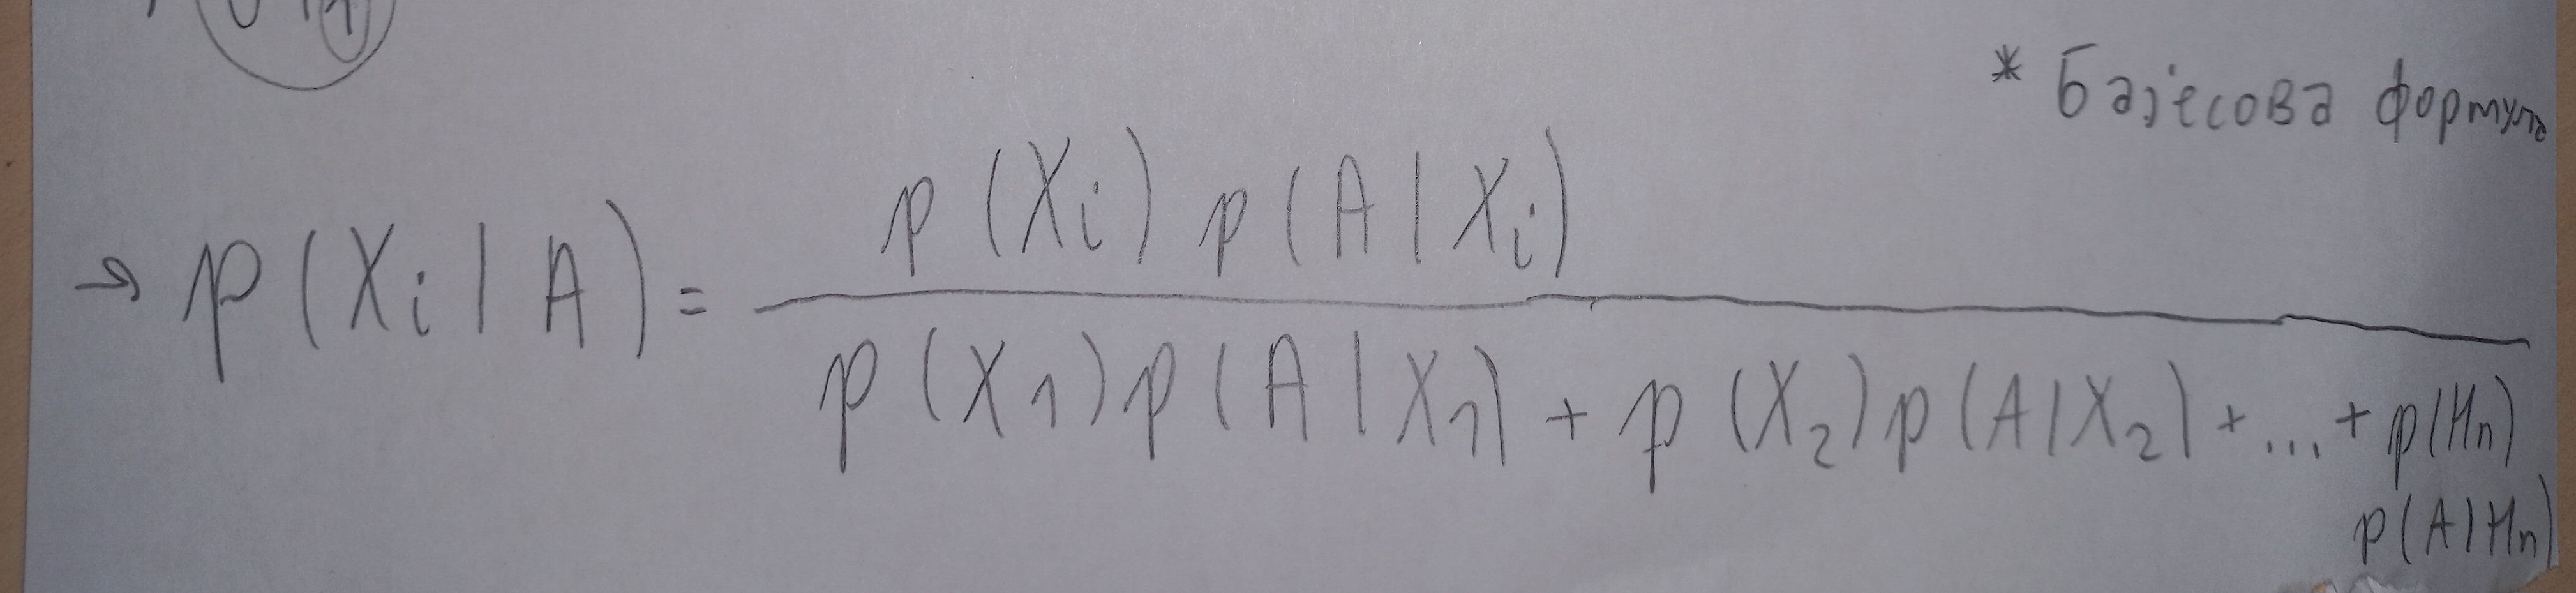 * Бајесова формула
→ p(Xi | A) = p(Xi) p(A | Xi)
p(X1) p(A | X1) + p(X2) p(A | X2) + ... + p(Hn)
p(A | Hn)